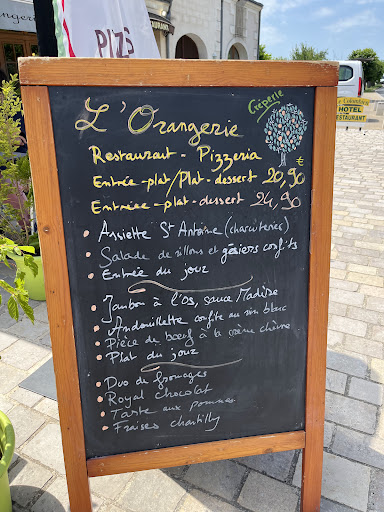 PIZZ
Crêperie
L'Orangerie
Restaurant - Pizzeria
Entrée-plat/Plat-dessert 20,90
€
Entrée-plat-dessert 24,90
• Assiette St Antoine (charcuteries)
• Salade de rillons et gésiers confits
• Entrée du jour
• Jambon à l'os, sauce Madère
• Andouillette confite au vin blanc
• Pièce de bœuf à la crème chèvre
• Plat du jour
• Duo de fromages
• Royal chocolat
• Tarte aux pommes
• Fraises chantilly
HOTEL
RESTAURANT